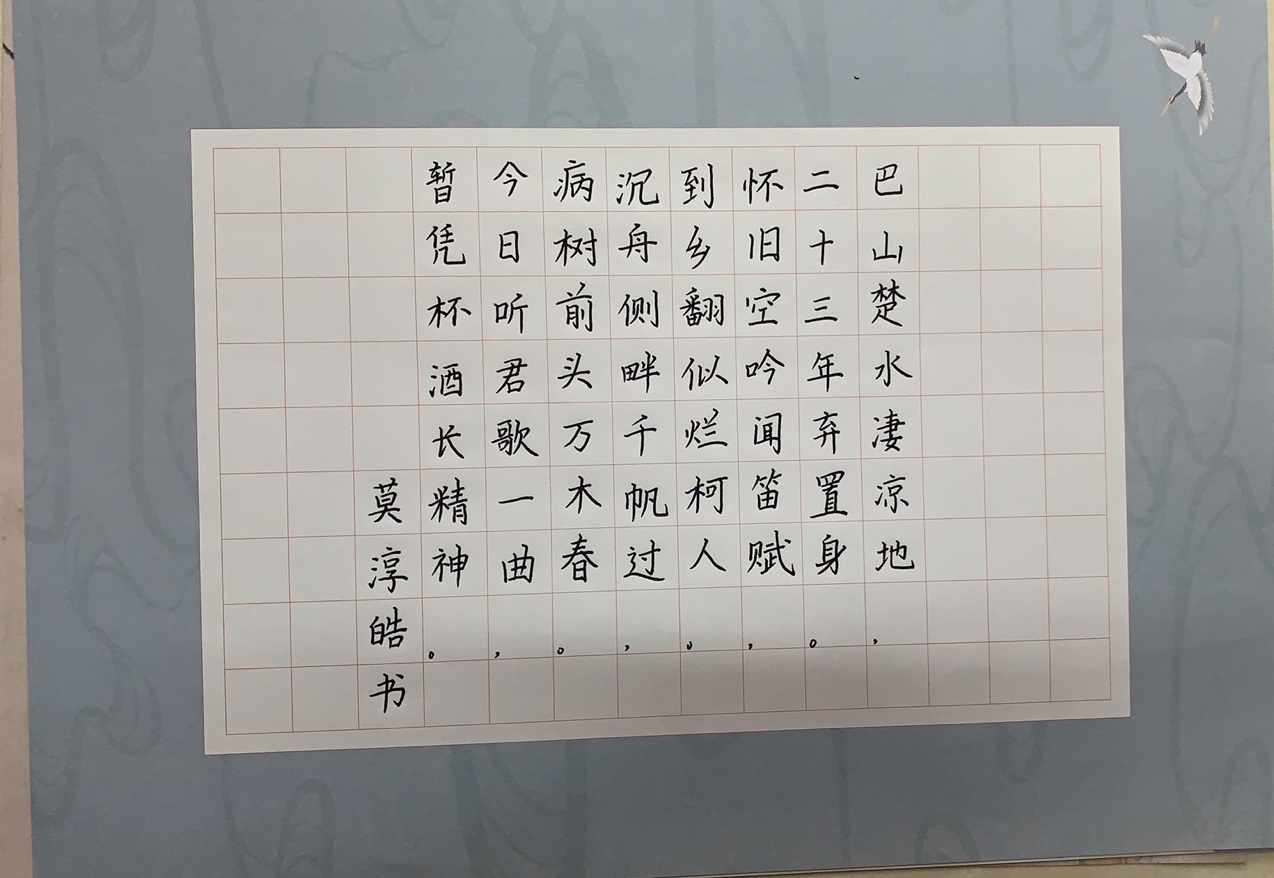 巴山楚水凄凉地，
二十三年弃置身。
怀旧空吟闻笛赋，
到乡翻似烂柯人。
沉舟侧畔千帆过，
病树前头万木春。
今日听君歌一曲，
暂凭杯酒长精神。
莫淳皓书